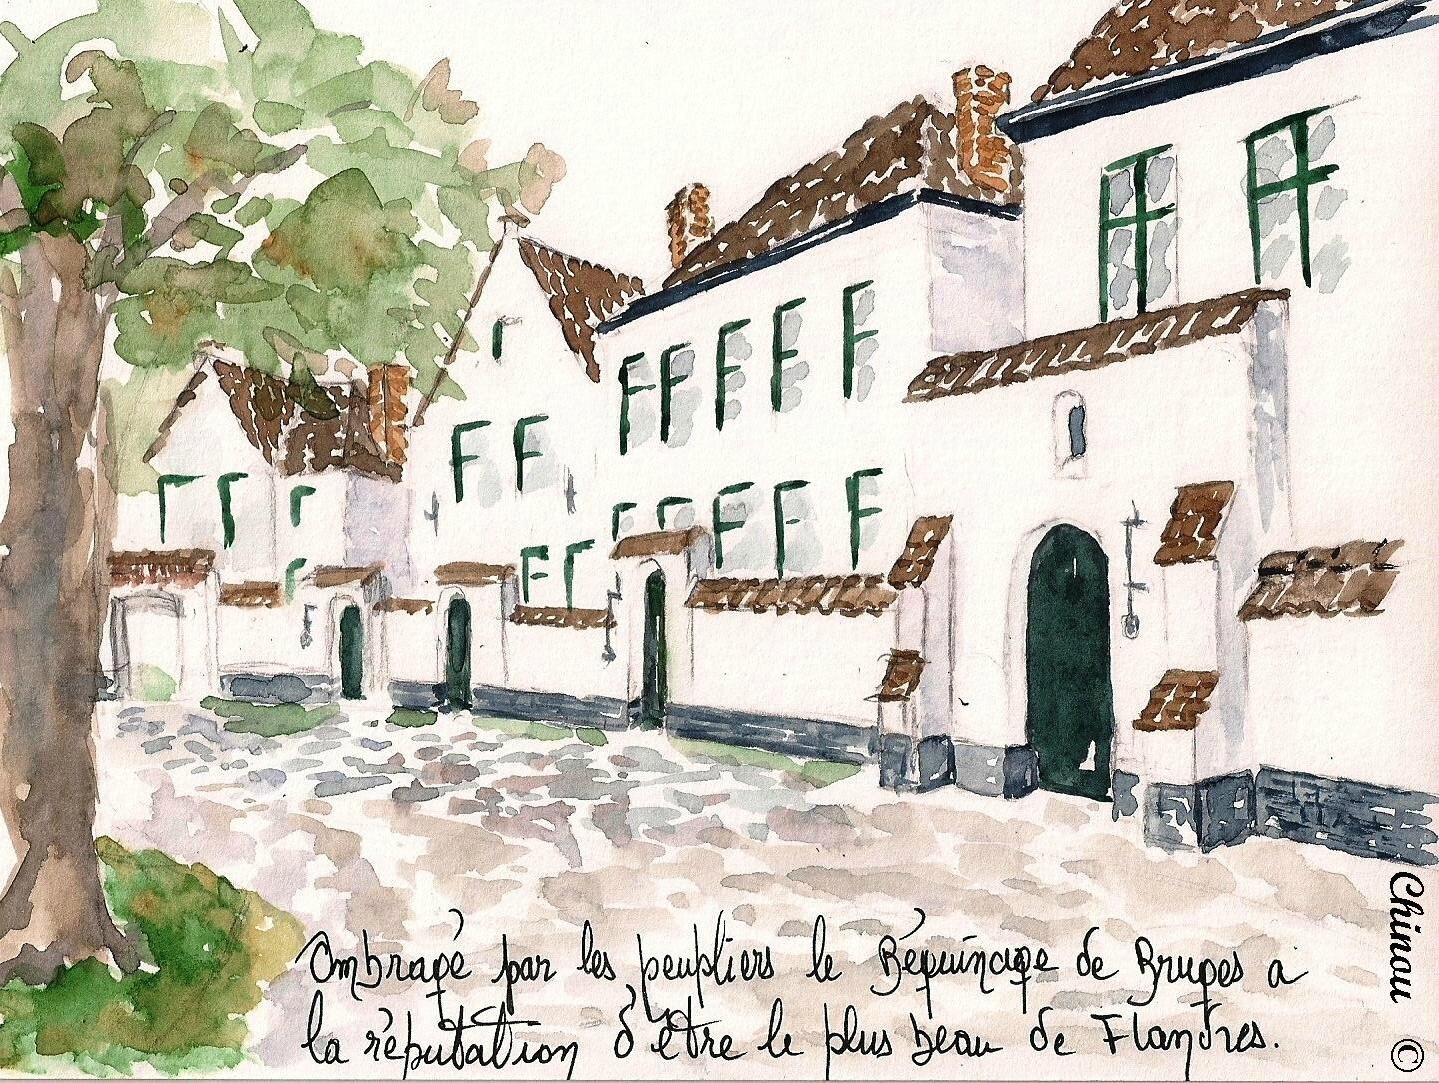 Ombragé par les peupliers le Béguinage de Bruges a
la réputation d'être le plus beau de Flandres.
Chinou ©